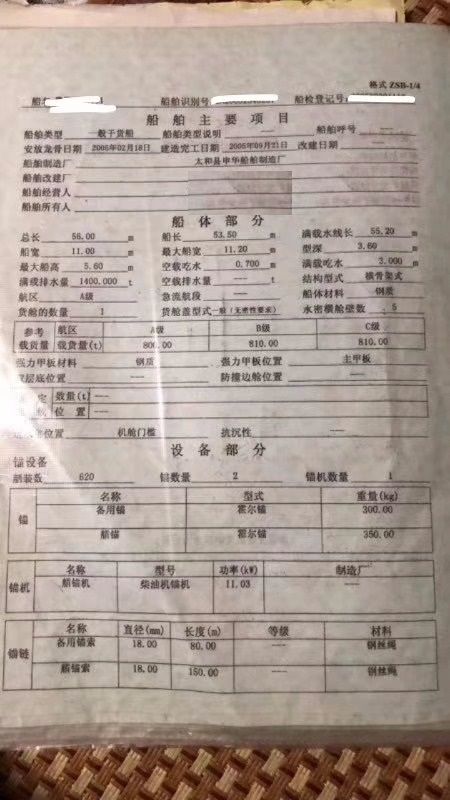 格式 ZSB-1/4
船舶识别号 船检登记号
船舶主要项目
船舶类型 一般干货船 船舶类型说明 —— 船舶呼号 ——
安放龙骨日期 2005年02月18日 建造完工日期 2005年09月21日 改建日期 ——
船舶制造厂 太和县申华船舶制造厂
船舶改建厂
船舶经营人
船舶所有人
船体部分
总长 56.00 m 船长 53.50 m 满载水线长 55.20 m
船宽 11.00 m 最大船宽 11.20 m 型深 3.60 m
最大船高 5.60 m 空载吃水 0.700 m 满载吃水 3.000 m
满载排水量 1400.000 t 空载排水量 —— t 结构型式 横骨架式
航区 A级 急流航段 —— 船体材料 钢质
货舱的数量 1 货舱盖型式 一般(无密性要求) 水密横舱壁数 5
参考 航区 A级 B级 C级
载货量 载货量(t) 800.00 810.00 810.00
强力甲板材料 钢质 强力甲板位置 主甲板
层底位置 —— 防撞边舱位置 ——
定 数量(t) ——
位置 ——
位置 机舱门槛 抗沉性 ——
设备部分
锚设备
舾装数 620 锚数量 2 锚机数量 1
锚 名称 型式 重量(kg)
备用锚 霍尔锚 300.00
艏锚 霍尔锚 350.00
锚机 名称 型号 功率(kW) 制造厂
艏锚机 柴油机锚机 11.03 ——
锚链 名称 直径(mm) 长度(m) 等级 材料
备用锚索 18.00 80.00 —— 钢丝绳
艏锚索 18.00 150.00 —— 钢丝绳